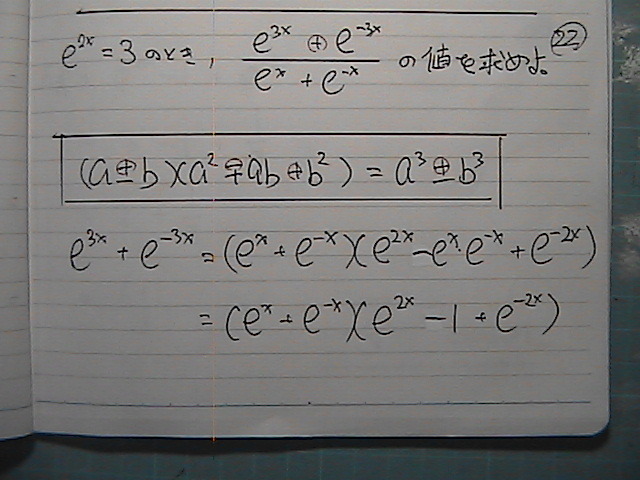 e^{2x} = 3 のとき, \frac{e^{3x} ⊕ e^{-3x}}{e^x + e^{-x}} の値を求めよ。 ㉒
(a ± b)(a^2 ∓ ab ⊕ b^2) = a^3 ± b^3
e^{3x} + e^{-3x} = (e^x + e^{-x})(e^{2x} - e^x・e^{-x} + e^{-2x})
= (e^x + e^{-x})(e^{2x} - 1 + e^{-2x})